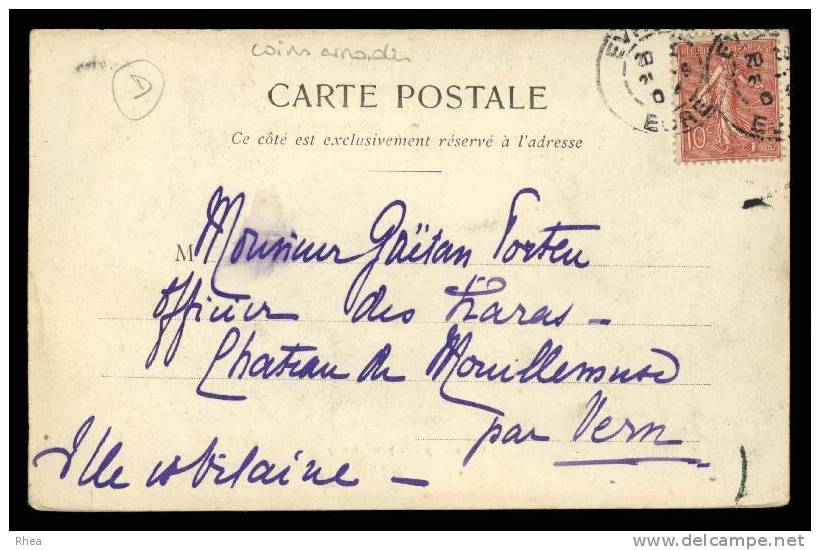 coins arrondis
CARTE POSTALE
Ce côté est exclusivement réservé à l'adresse
RÉPUBLIQUE FRANÇAISE
10c
EURE
M Monsieur Gaëtan Porteu
officier des Haras -
Chateau de Mouillemuse
par Vern
Ille et Vilaine -
Rhea
delcampe.net